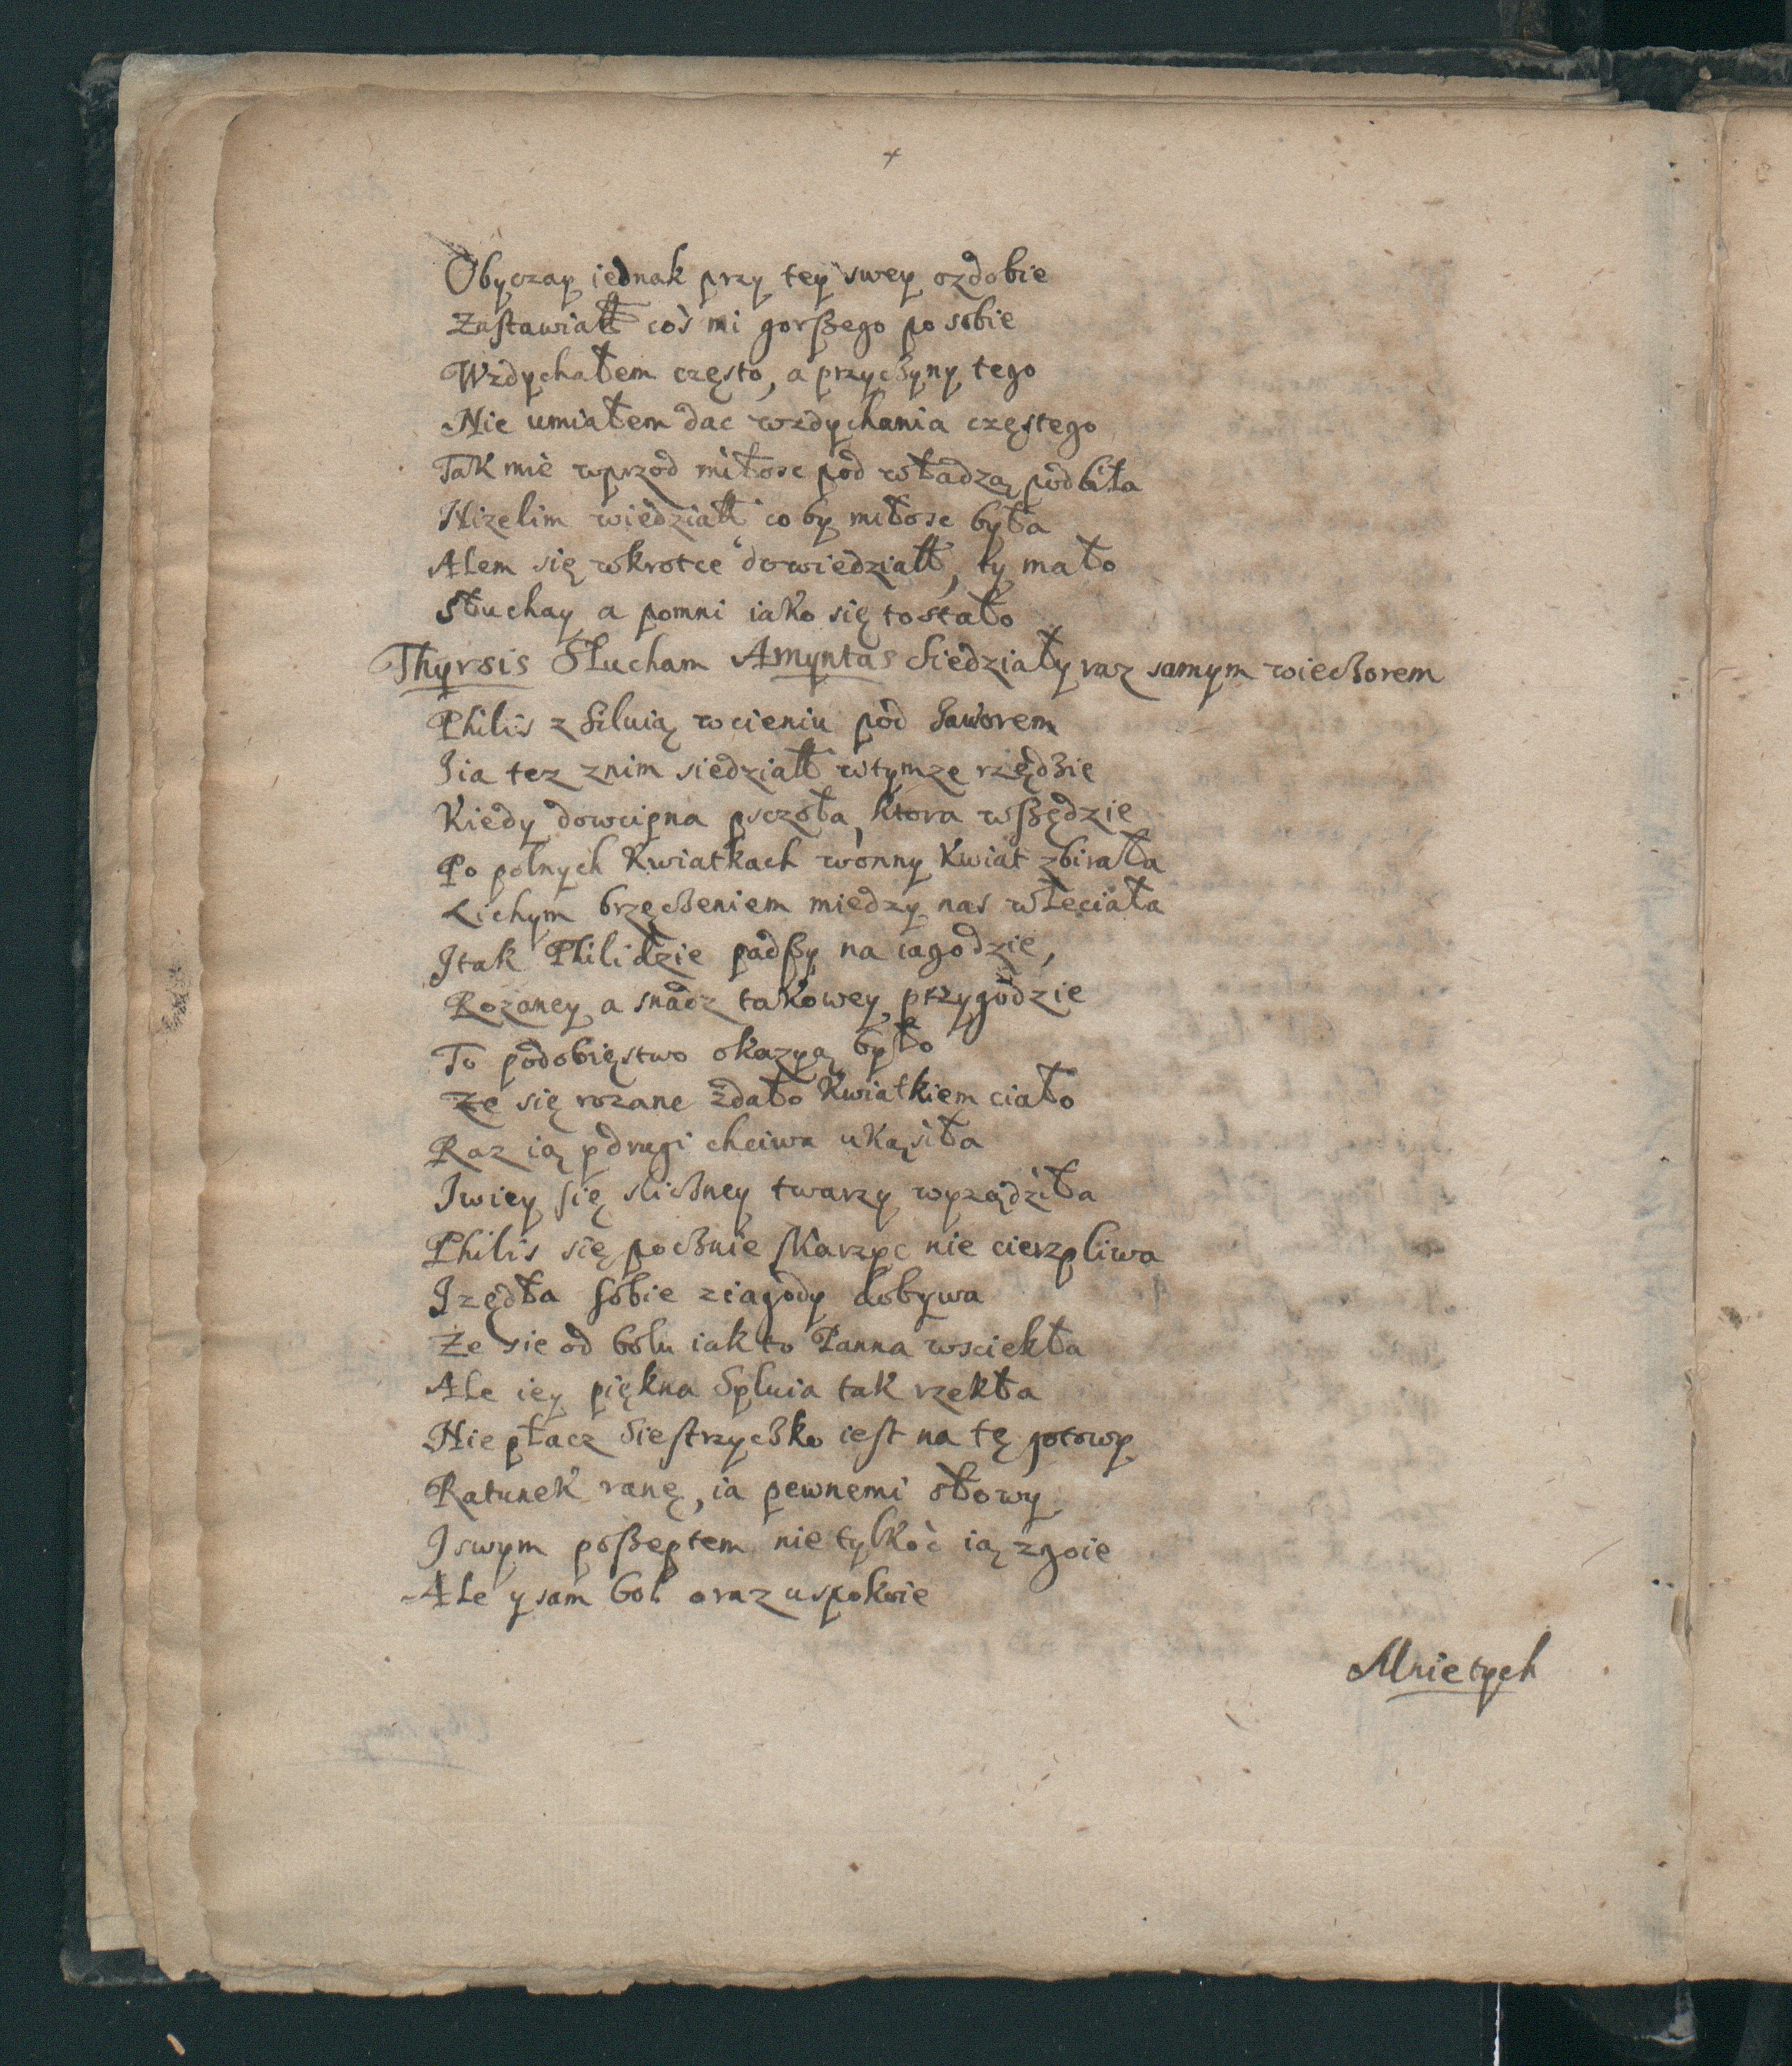 Obyczay iednak przy tey swey ozdobie
Zastawiałł coś mi gorßego po sobie
Wzdychałem często, a przyczyny tego
Nie umiałem dac wzdychania częstego
Tak mie wprzod miłosc pod władzą podbiła
Nizelim wiedziałł co by miłosc była
Alem się wkrotce dowiedziałł, ty mało
Słuchay a pomni iako się to stało
Thyrsis Słucham Amyntas Siedziały raz samym wieczorem
Philis z Siluią w cieniu pod Jaworem
Jia tez znim siedziałł wtymze rzędzie
Kiedy dowcipna psczoła, ktora wßędzie
Po polnych Kwiatkach wonny Kwiat zbirała
Lichym brzęczeniem miedzy nas wleciała
Jtak Philidzie padßy na iagodzie,
Rozaney a snadz takowey przygodzie
To podobięstwo okazyą było
Ze się rozane zdało Kwiatkiem ciało
Raz ią pdrugi chciwa ukąsiła
Jwiey się sliczney twarzy wyządziła
Philis się pocznie skarzyc nie cierzpliwa
Jzędła sobie ziagody dobywa
Ze sie od bolu iak to Panna wsciekła
Ale iey piękna Syluia tak rzekła
Nie płacz Siestrzyczko iest na tę gotowy
Ratunek ranę, ia pewnemi słowy
Jswym poßeptem nie tylkoć ią zgoie
Ale y sam bol oraz uspokoie
Mnie tych